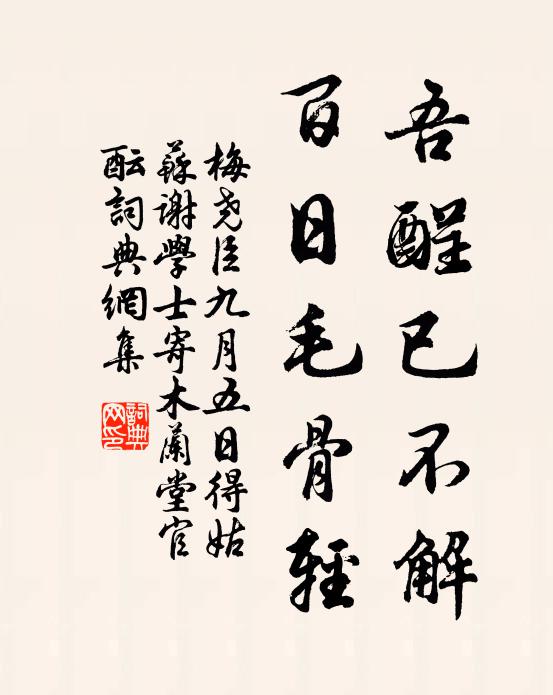 吾醒已不解
百日毛骨輕
梅堯臣九月五日得姑
蘇謝學士寄木蘭堂官
酝詞典網集
詞典网印